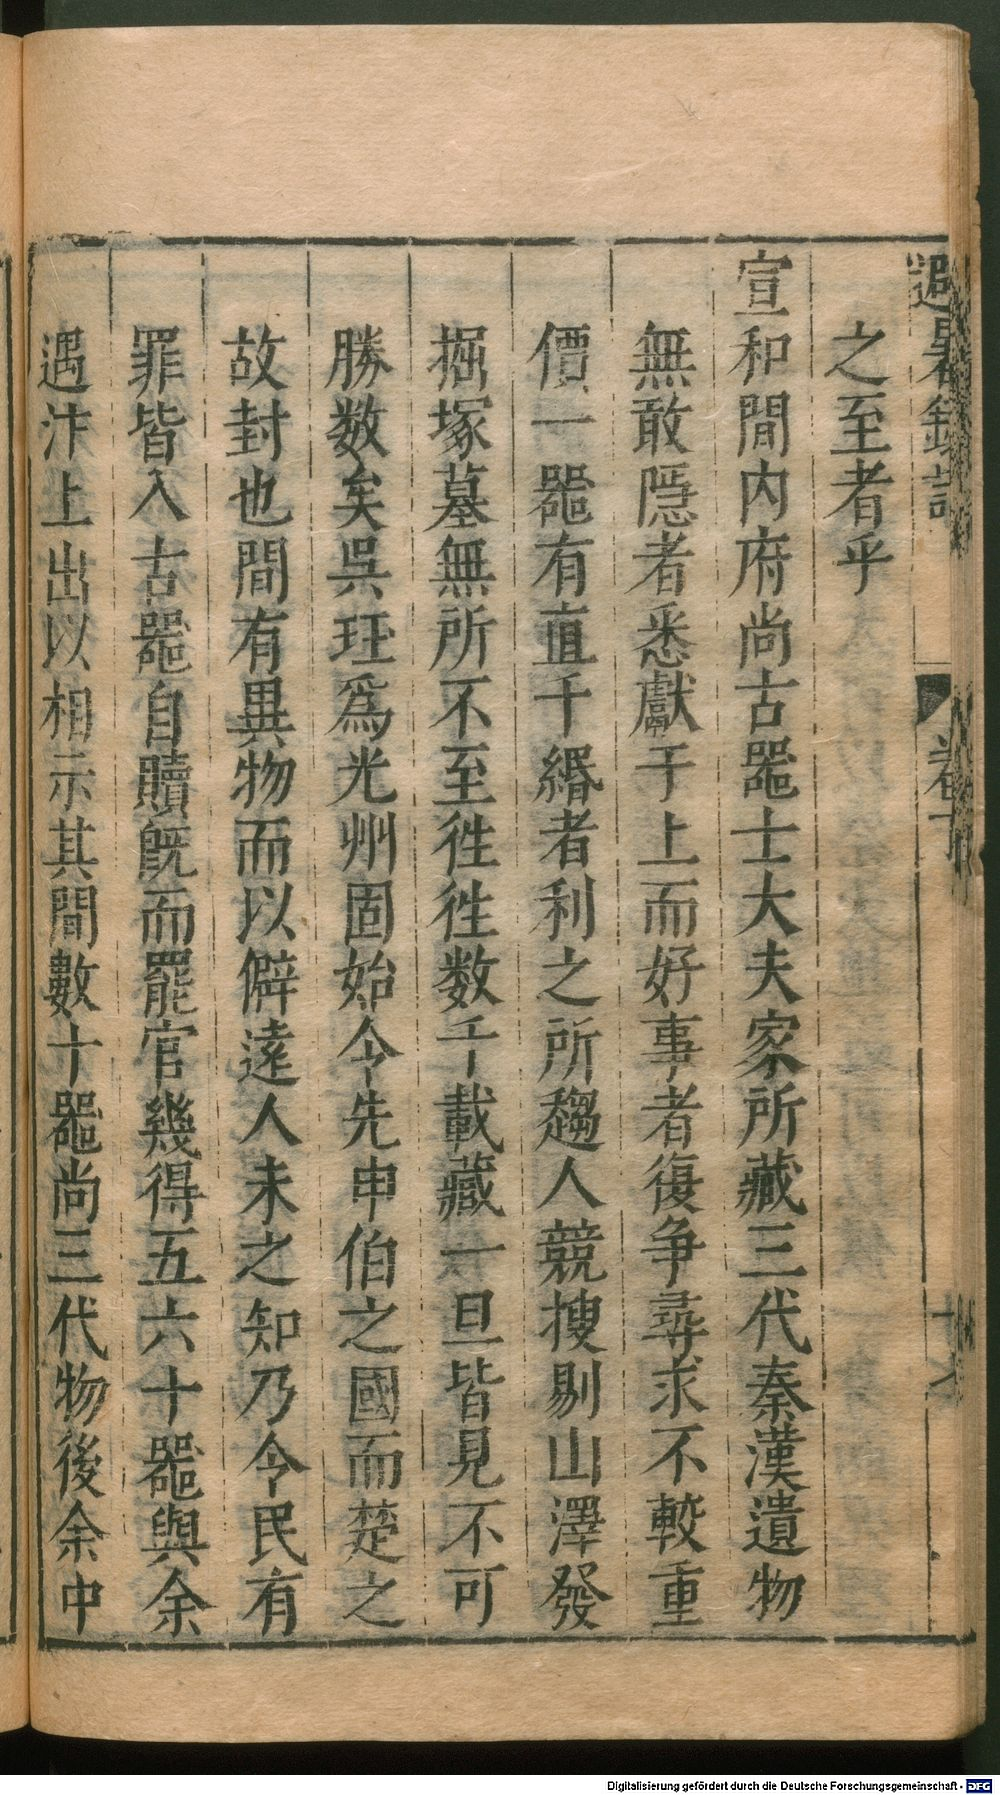 避暑錄話
卷下
之至者乎
宣和間内府尚古器士大夫家所藏三代秦漢遺物
無敢隱者悉獻于上而好事者復争尋求不較重
價一器有直千緡者利之所趨人競搜剔山澤發
掘塚墓無所不至徃徃数千載藏一旦皆見不可
勝数矣吳珏爲光州固始令先申伯之國而楚之
故封也間有異物而以僻遠人未之知乃令民有
罪皆入古器自贖旣而罷官幾得五六十器與余
遇汴上出以相示其間數十器尚三代物後余中
Digitalisierung gefördert durch die Deutsche Forschungsgemeinschaft - DFG